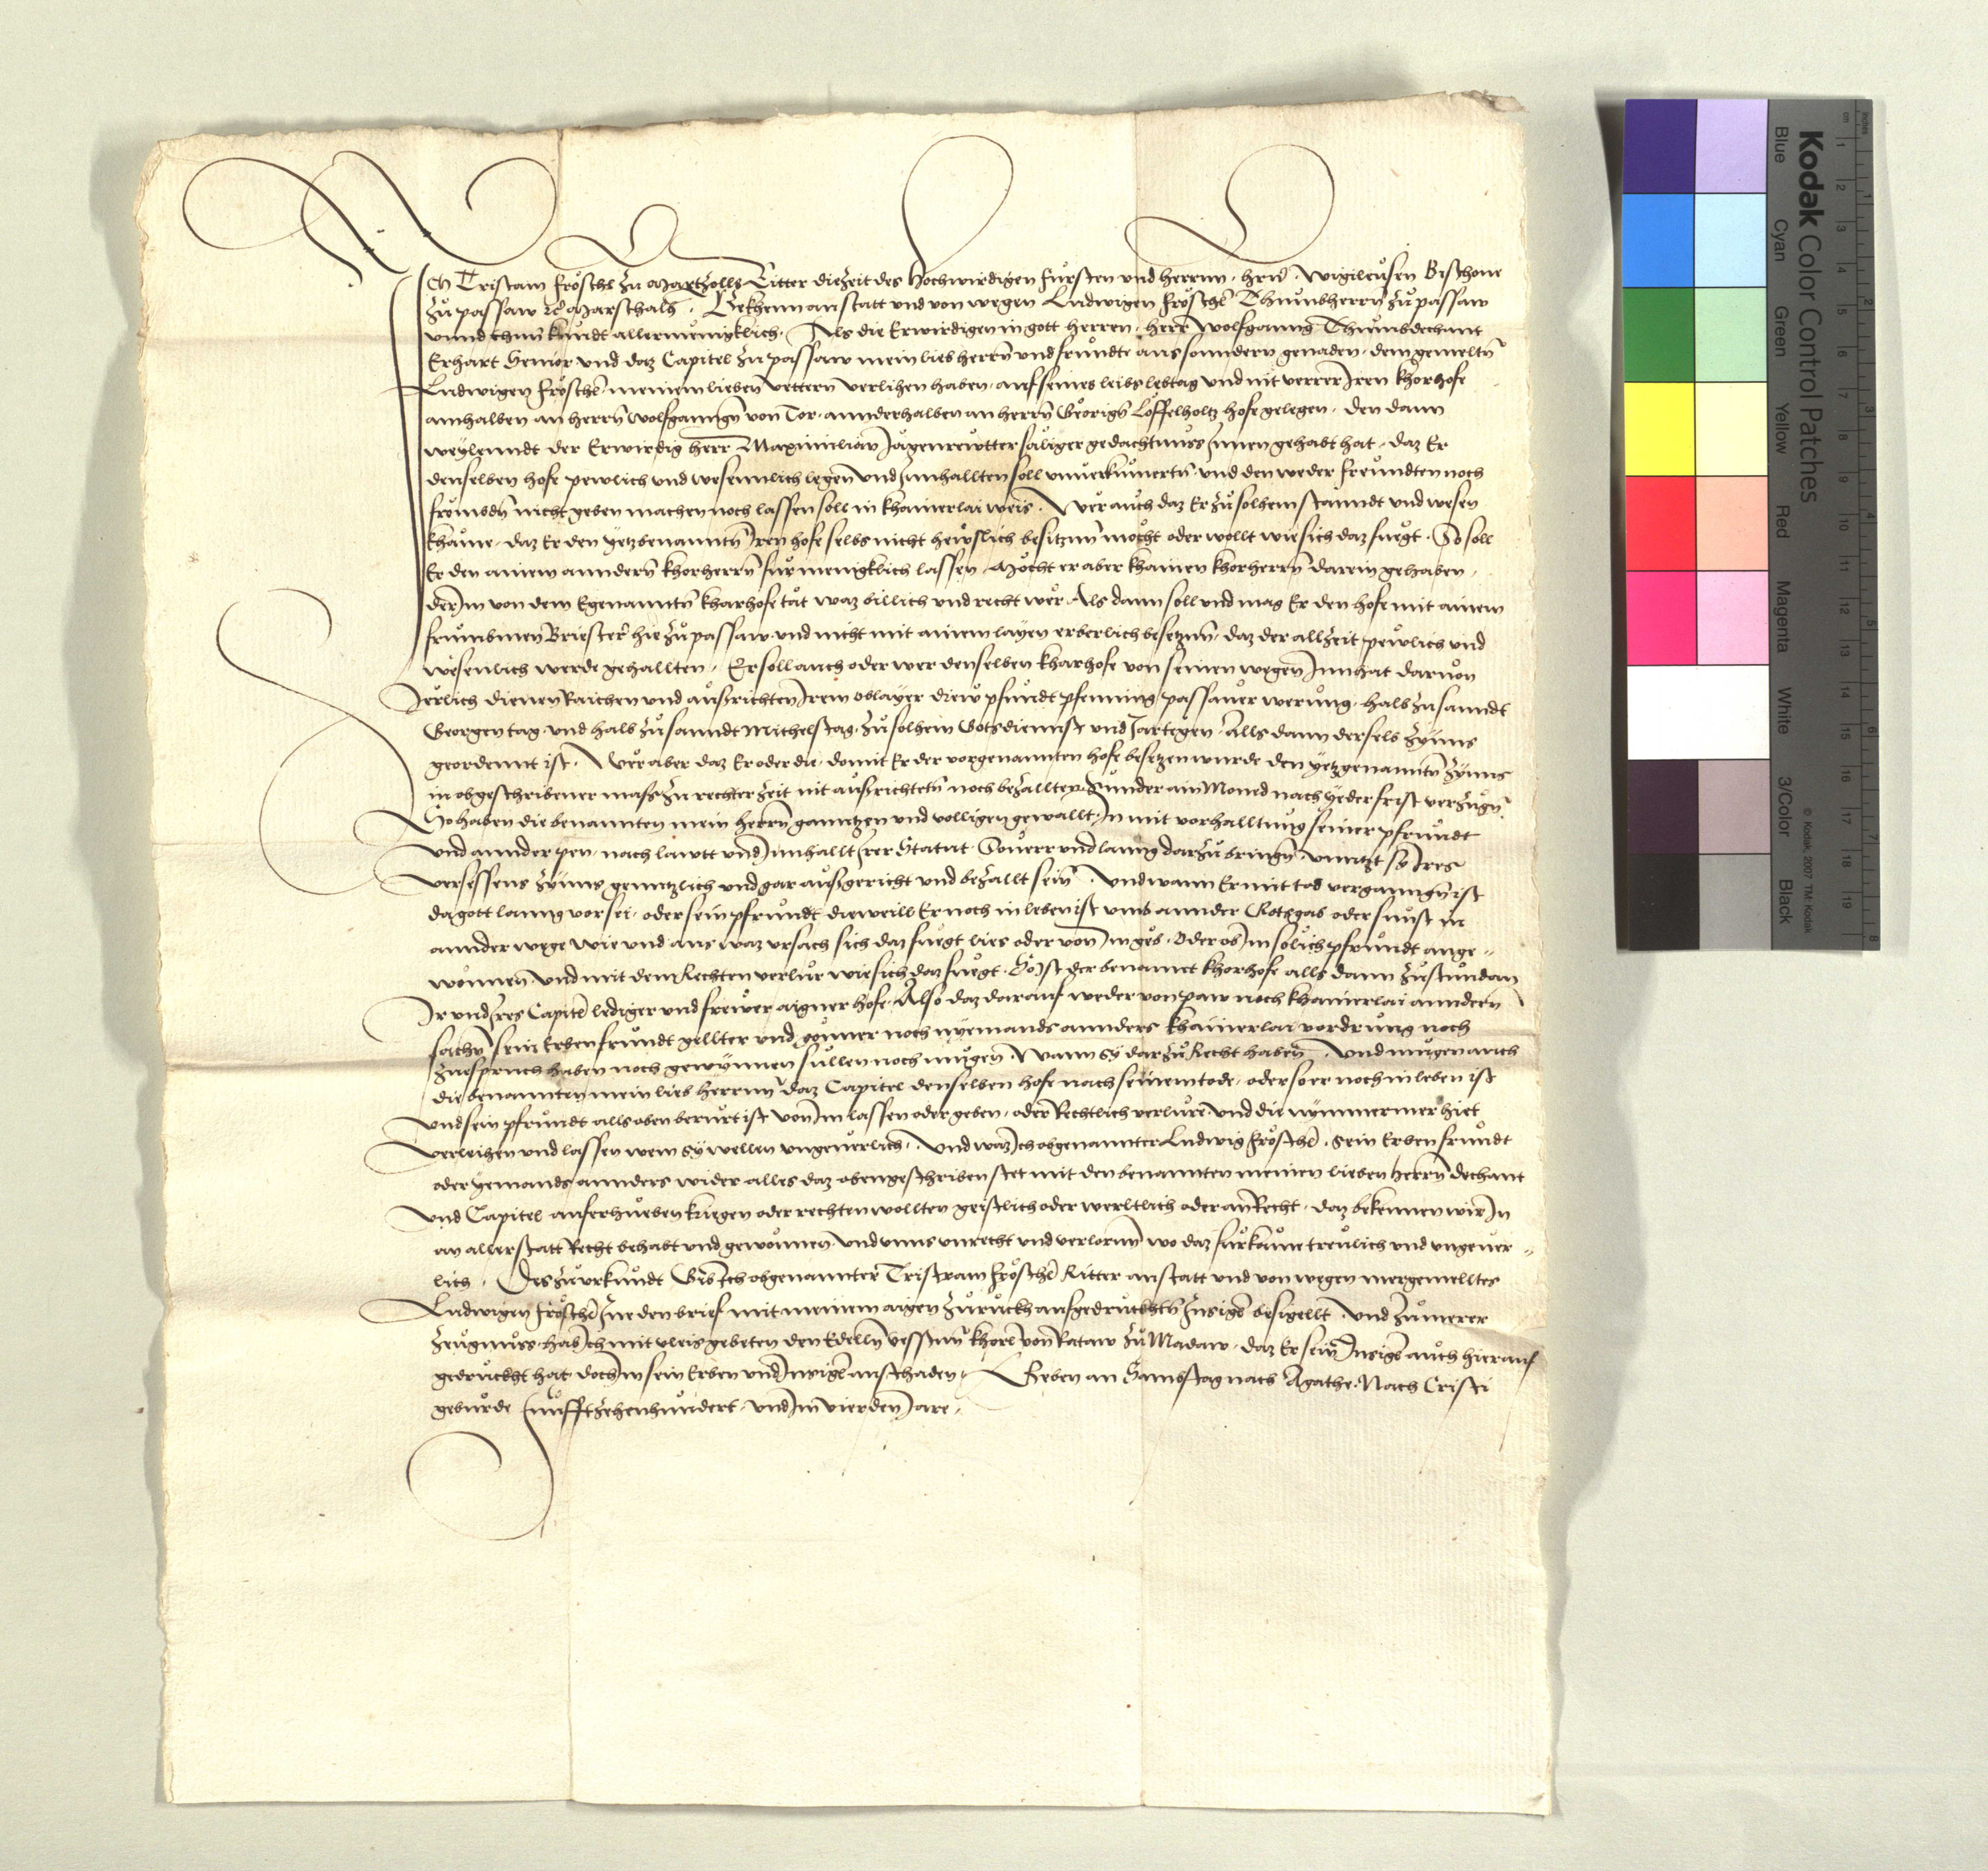 Ich Tristam Fröschl zu Martzolls Ritter diezeit des Hochwirdigen Fürsten und herrnn, hrn̄. Wigileusen Bischoue
zu passaw Marschalh. Bekhenn anstatt und von wegen Ludwigen Fröschl Thumbherrn̄ zu passaw
unnd thun kundt allermenigklich. Als die Erwirdigen in gott herren, herr Wolfganng Thumbdechant
Erhart Senior und daz Capitel zu passaw mein lieb herrn̄ und frundte aus sonndern genaden, dem gemeltn̄
Ludwigen Fröschl meinem lieben vettern verlihen haben, auf seines leibs lebtag und nit verrer Iren khorhofe
ainhalben an herrn̄ Wolfganngn̄ von Tor, annderhalben an herrn̄ Georign̄ Löffelholtz hofe gelegen, den dann
weylenndt der Erwirdig herr Maximilian Jägenrewtter säliger gedachtnuss Innen gehabt hat, daz Er
denselben hofe pewlich und wesennlich legen̄ und Innhallten soll unverkumertn̄ und den weder freundten noch
frömbdn̄ nicht geben machen noch lassen soll in khainerlai weis. Wer auch daz Er zu solhem stanndt und wesen
khäme, daz Er den yetzbenanntn̄ Iren hofe selbs nicht hewslich besitznn̄ möcht oder wollt wie sich daz fuegt. So soll
Er den ainem anndern̄ khorherrn̄ fur menigklich lassen, Möcht er aber khainen khorherrn̄ darein gehaben,
der Im von dem Egenanntn̄ kharhofe tät waz billich und recht wer. Als dann soll und mag Er den hofe mit ainem
frumbmen Briester hie zu passaw und nicht mit ainem layen erberlich besetznn̄, daz der allzeit pewlich und
wesenlich werde gehallten. Er soll auch oder wer denselben kharhofe von seinen wegen̄ Innhat daruon
Jerlich dienen Raichen und aussrichten Irem oblayer drew pfundt pfenning passauer werung, halb zu sanndt
Georgen tag und halb zu sanndt Michels tag, zu solhem Gotsdiennst und Jartegen, Alls dann derselb Zynns
geordennt ist. Wer aber daz Er oder die, domit Er der vorgenannten hofe besetzen wurde den yetzgenanntn̄ Zynns
in obgeschribener mass zu rechter zeit nit aussrichtetn̄ noch bezallten, Sunder ain Moned nach yeder frist verzugn̄.
So haben die benannten mein herrn̄ ganntzen und volligen gewallt, In mit vorhalltung seiner pfrundt
und annder pen, nach lawtt und Innhallt Irer Statut Souerr und lanng darzu bringn̄ unntzt sy Ires
versessens Zynns genntzlich und gar aussgericht und bezallt sein̄. Und wann Er mit tod verganngn̄ ist
da gott lanng vor sei, oder sein pfrundt dieweill Er noch in leben ist umb annder Rothgab oder sunst in
annder wege wie und aus waz ursach sich daz fuegt lies oder von Im geb. Oder ob Im solich pfrundt ange-
wonnen und mit dem Rechten verlur wie sich daz fuegt. So Ist der benannt khorhofe alls dann zustundan
Ir und Ires Capitl lediger und freyer aigner hofe. Also daz darauf weder von paw noch khainerlai anndern
sachn̄ sein Erben frundt gellter und gönner noch nyemands annders khainerlai vordrung noch
zuespruch haben noch gewynnen sullen noch mugen. Wann sy darzu Recht haben̄. Und mugen auch
die benannten mein lieb herrnn̄ daz Capitel denselben hofe nach seinem tode, oder so er noch in leben ist
und sein pfrundt alls oben berurt ist von Im lassen oder geben, oder Rechtlich verlure und die nymmermer hiet
verleihen und lassen wem sy wellen ungeuerlich. Und waz Ich obgenannter Ludwig Fröschl, sein Erben frundt
oder yemands annders wider alles daz obengeschriben stet mit den benannten meinen lieben herrn̄ dechant
und Capitel auferhueben kriegen oder rechten wollten geistlich oder werltlich oder an Recht, daz bekennen wir In
an aller statt Recht behabt und gewonnen und unns unrecht und verlornn̄ wo daz furkäme treulich und ungeuer-
lich. Des zu urkundt Gib Ich obgenannter Tristram Fröschl Ritter anstatt und von wegen mergemelltes
Ludwigen Fröschl Ine den brief mit meinem aigen zuruckh aufgedruckhtn̄ Insigl besigellt. Und zu merer
zeugnuss hab Ich mit vleis gebeten den Edelln̄ vesstnn̄ khorl von Rataw zu Madaw, daz Er sein̄ Insigl auch hierauf
gedruckht hat doch Im sein Erben und Insigl an schaden. Geben an Sambstag nach Agathe. Nach Cristi
geburde funfftzehenhundert und Im vierden Jare.